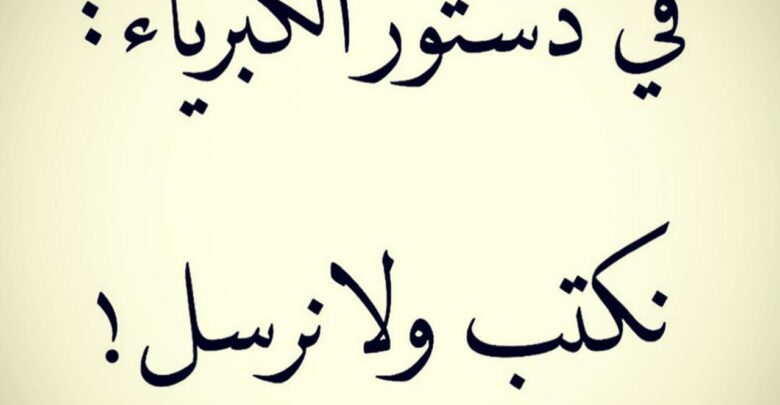 في دستور الكبرياء :
نكتب ولا نرسل !